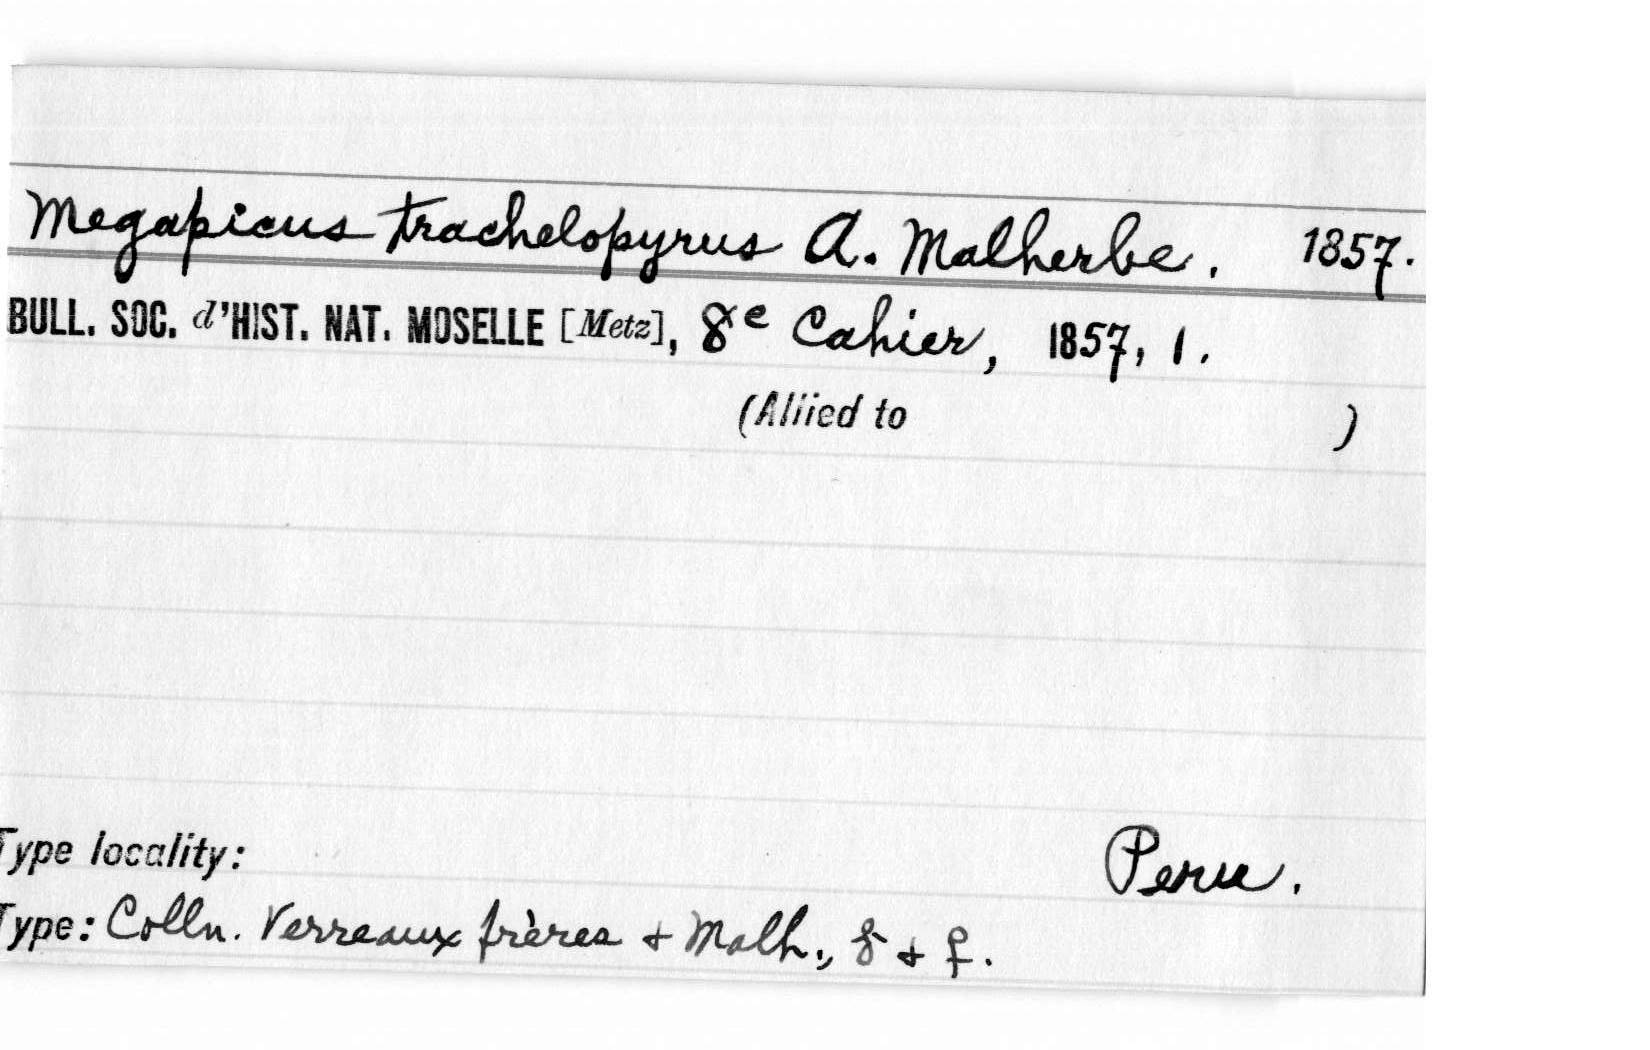 Megapicus trachelopyrus A. Malherbe. 1857.
BULL. SOC. d'HIST. NAT. MOSELLE [Metz], 8e Cahier, 1857, 1.
(Allied to )
Type locality: Peru.
Type: Colln. Verreaux frères + Malh., ♂ + ♀.